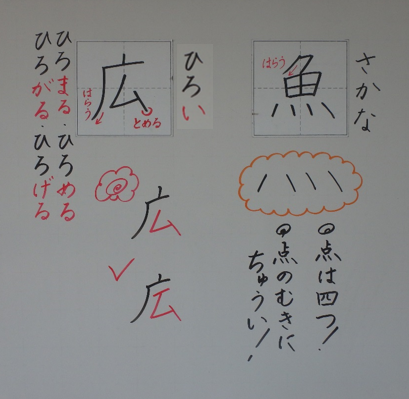 さかな
魚
はらう
◎点は四つ!
◎点のむきに
ちゅうい!!
ひろい
広
はらう
とめる
広
広
ひろまる・ひろめる
ひろがる・ひろげる